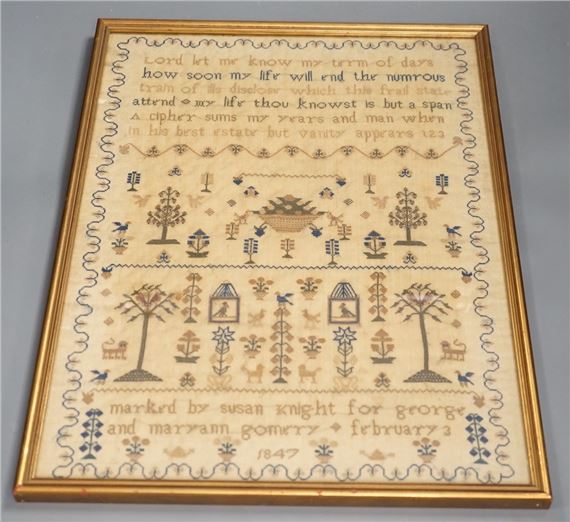 Lord let me know my term of days
how soon my life will end the numrous
train of ills disclose which this frail state
attend my life thou knowst is but a span
A cipher sums my years and man when
in his best estate but vanity appears 123
marked by susan knight for george
and maryann gomery february 3
1847